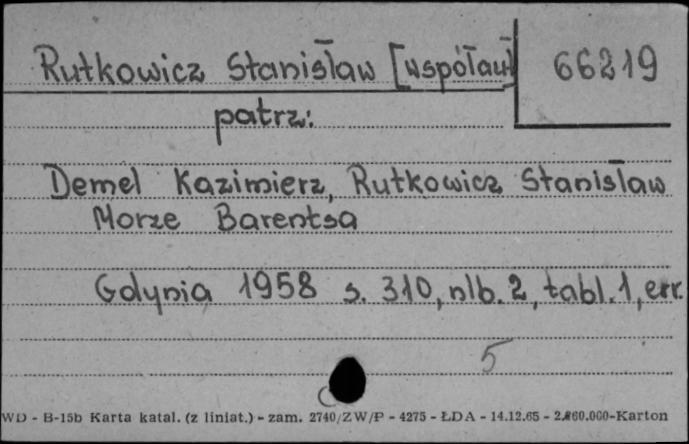 Rutkowicz Stanisław [współaut]
66219
patrz:
Demel Kazimierz, Rutkowicz Stanisław
Morze Barentsa
Gdynia 1958 s. 310, nlb. 2, tabl. 1, err.
5
WD - B-15b Karta katal. (z liniat.) - zam. 2740/ZW/P - 4275 - ŁDA - 14.12.65 - 2.860.000-Karton